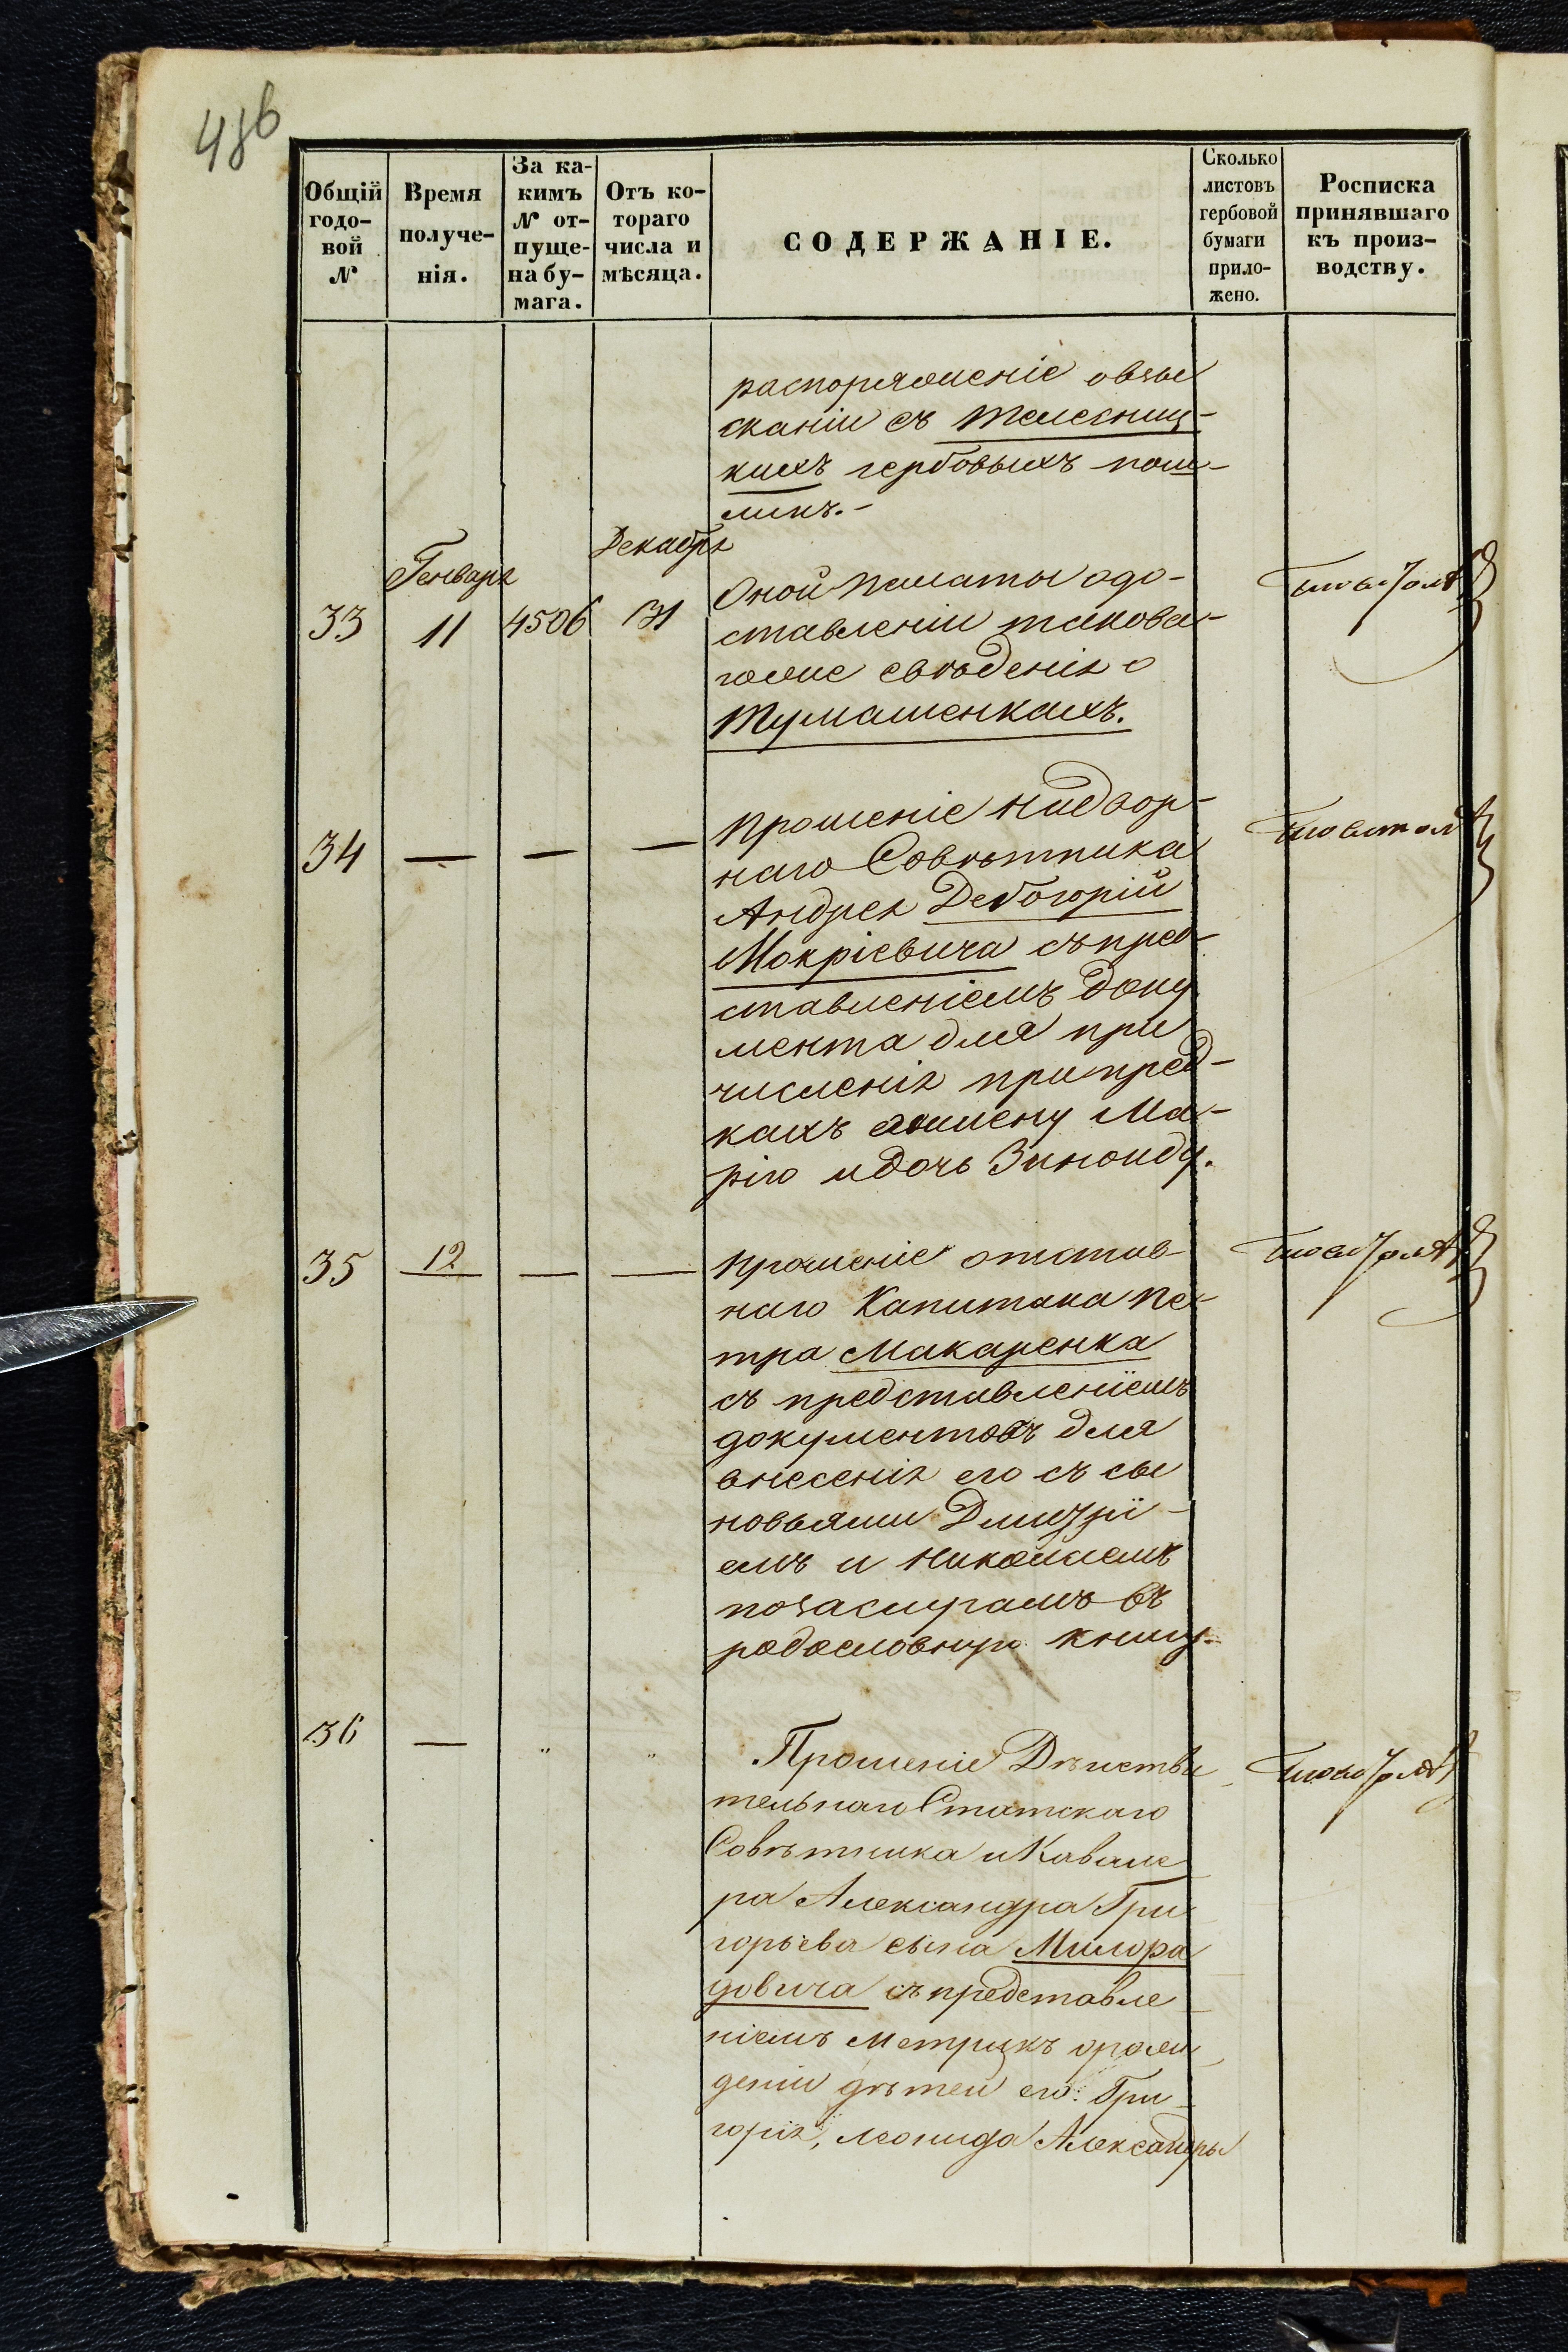 486
Общій годо-вой №
Время получе-нія.
За ка-кимъ № от-пуще-на бу-мага.
Отъ ко-тораго числа и мѣсяца.
СОДЕРЖАНІЕ.
Сколько листовъ гербовой бумаги прило-жено.
Росписка принявшаго къ произ-водству.
распоряженіе овзы
сканіи съ
кихъ гербовыхъ пош-
линъ.-
Генваря
Декабря
33 11 4506 31
Оной Палаты одо-
ставленіи таковa-
гоже свѣденія о
Тумашенкахъ.
34 — — —
Прошеніе Надвор-
наго Совѣтника
Андрея Дебогорій
Мокріевича съ пред-
ставленіемъ доку
мента для при
численія при пред-
кахъ жену Ма-
рію и дочь Зинаиду.
35 12 — —
Прошеніе отстав-
наго Капитана Пе-
тра Макаренка
съ представленіемъ
документовъ для
внесенія его съ сы
новьями Дмитрі-
емъ и Николаемъ
позаслугамъ въ
родословную книгу.
36 — " "
Прошеніе Дѣйстви
тельнаго Статскаго
Совѣтника и Кавале
ра Александра Гри
горьева сына Милора
довича съ представле
ніемъ метрикъ орож
деніи дѣтей его: Гри-
горія, Леонида Александры